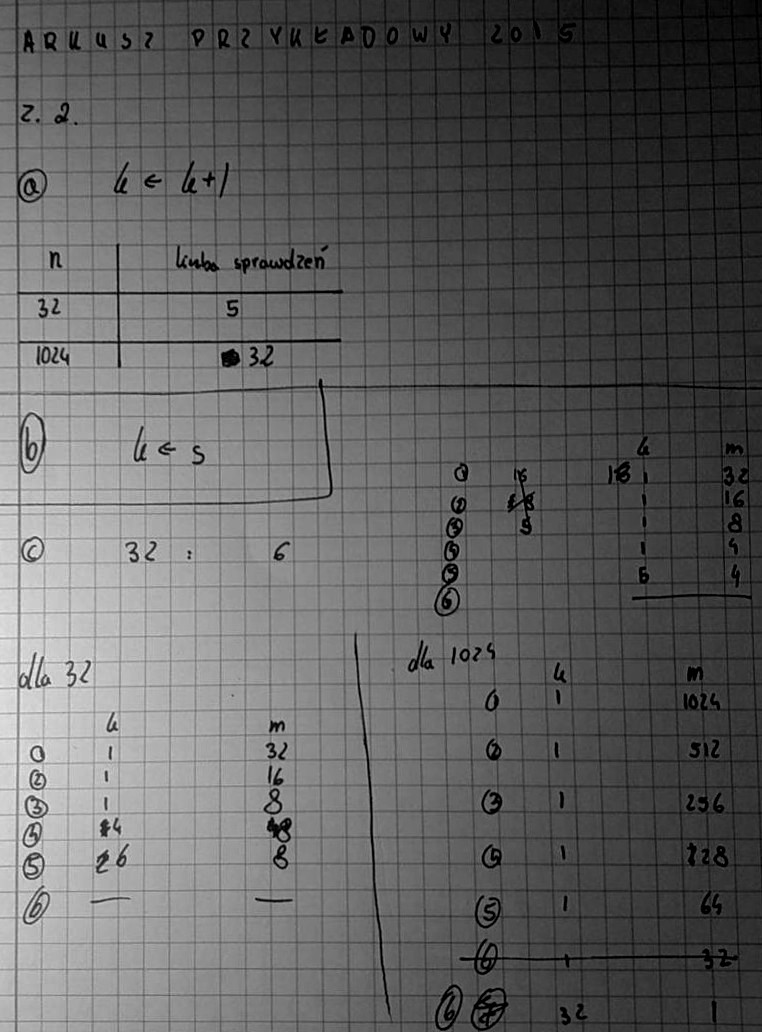 ARKUSZ PRZYKŁADOWY 2015
z. 2.
a k ← k+1
n liczba sprawdzeń
32 5
1024 32
b k ← s
k m
1 1 32
2 1 16
3 1 8
4 1 4
5 6 4
6
c 32 : 6
dla 32
k m
1 1 32
2 1 16
3 1 8
4 4 8
5 6 8
6 — —
dla 1024
k m
1 1 1024
2 1 512
3 1 256
4 1 128
5 1 64
6 1 32
6 32 1